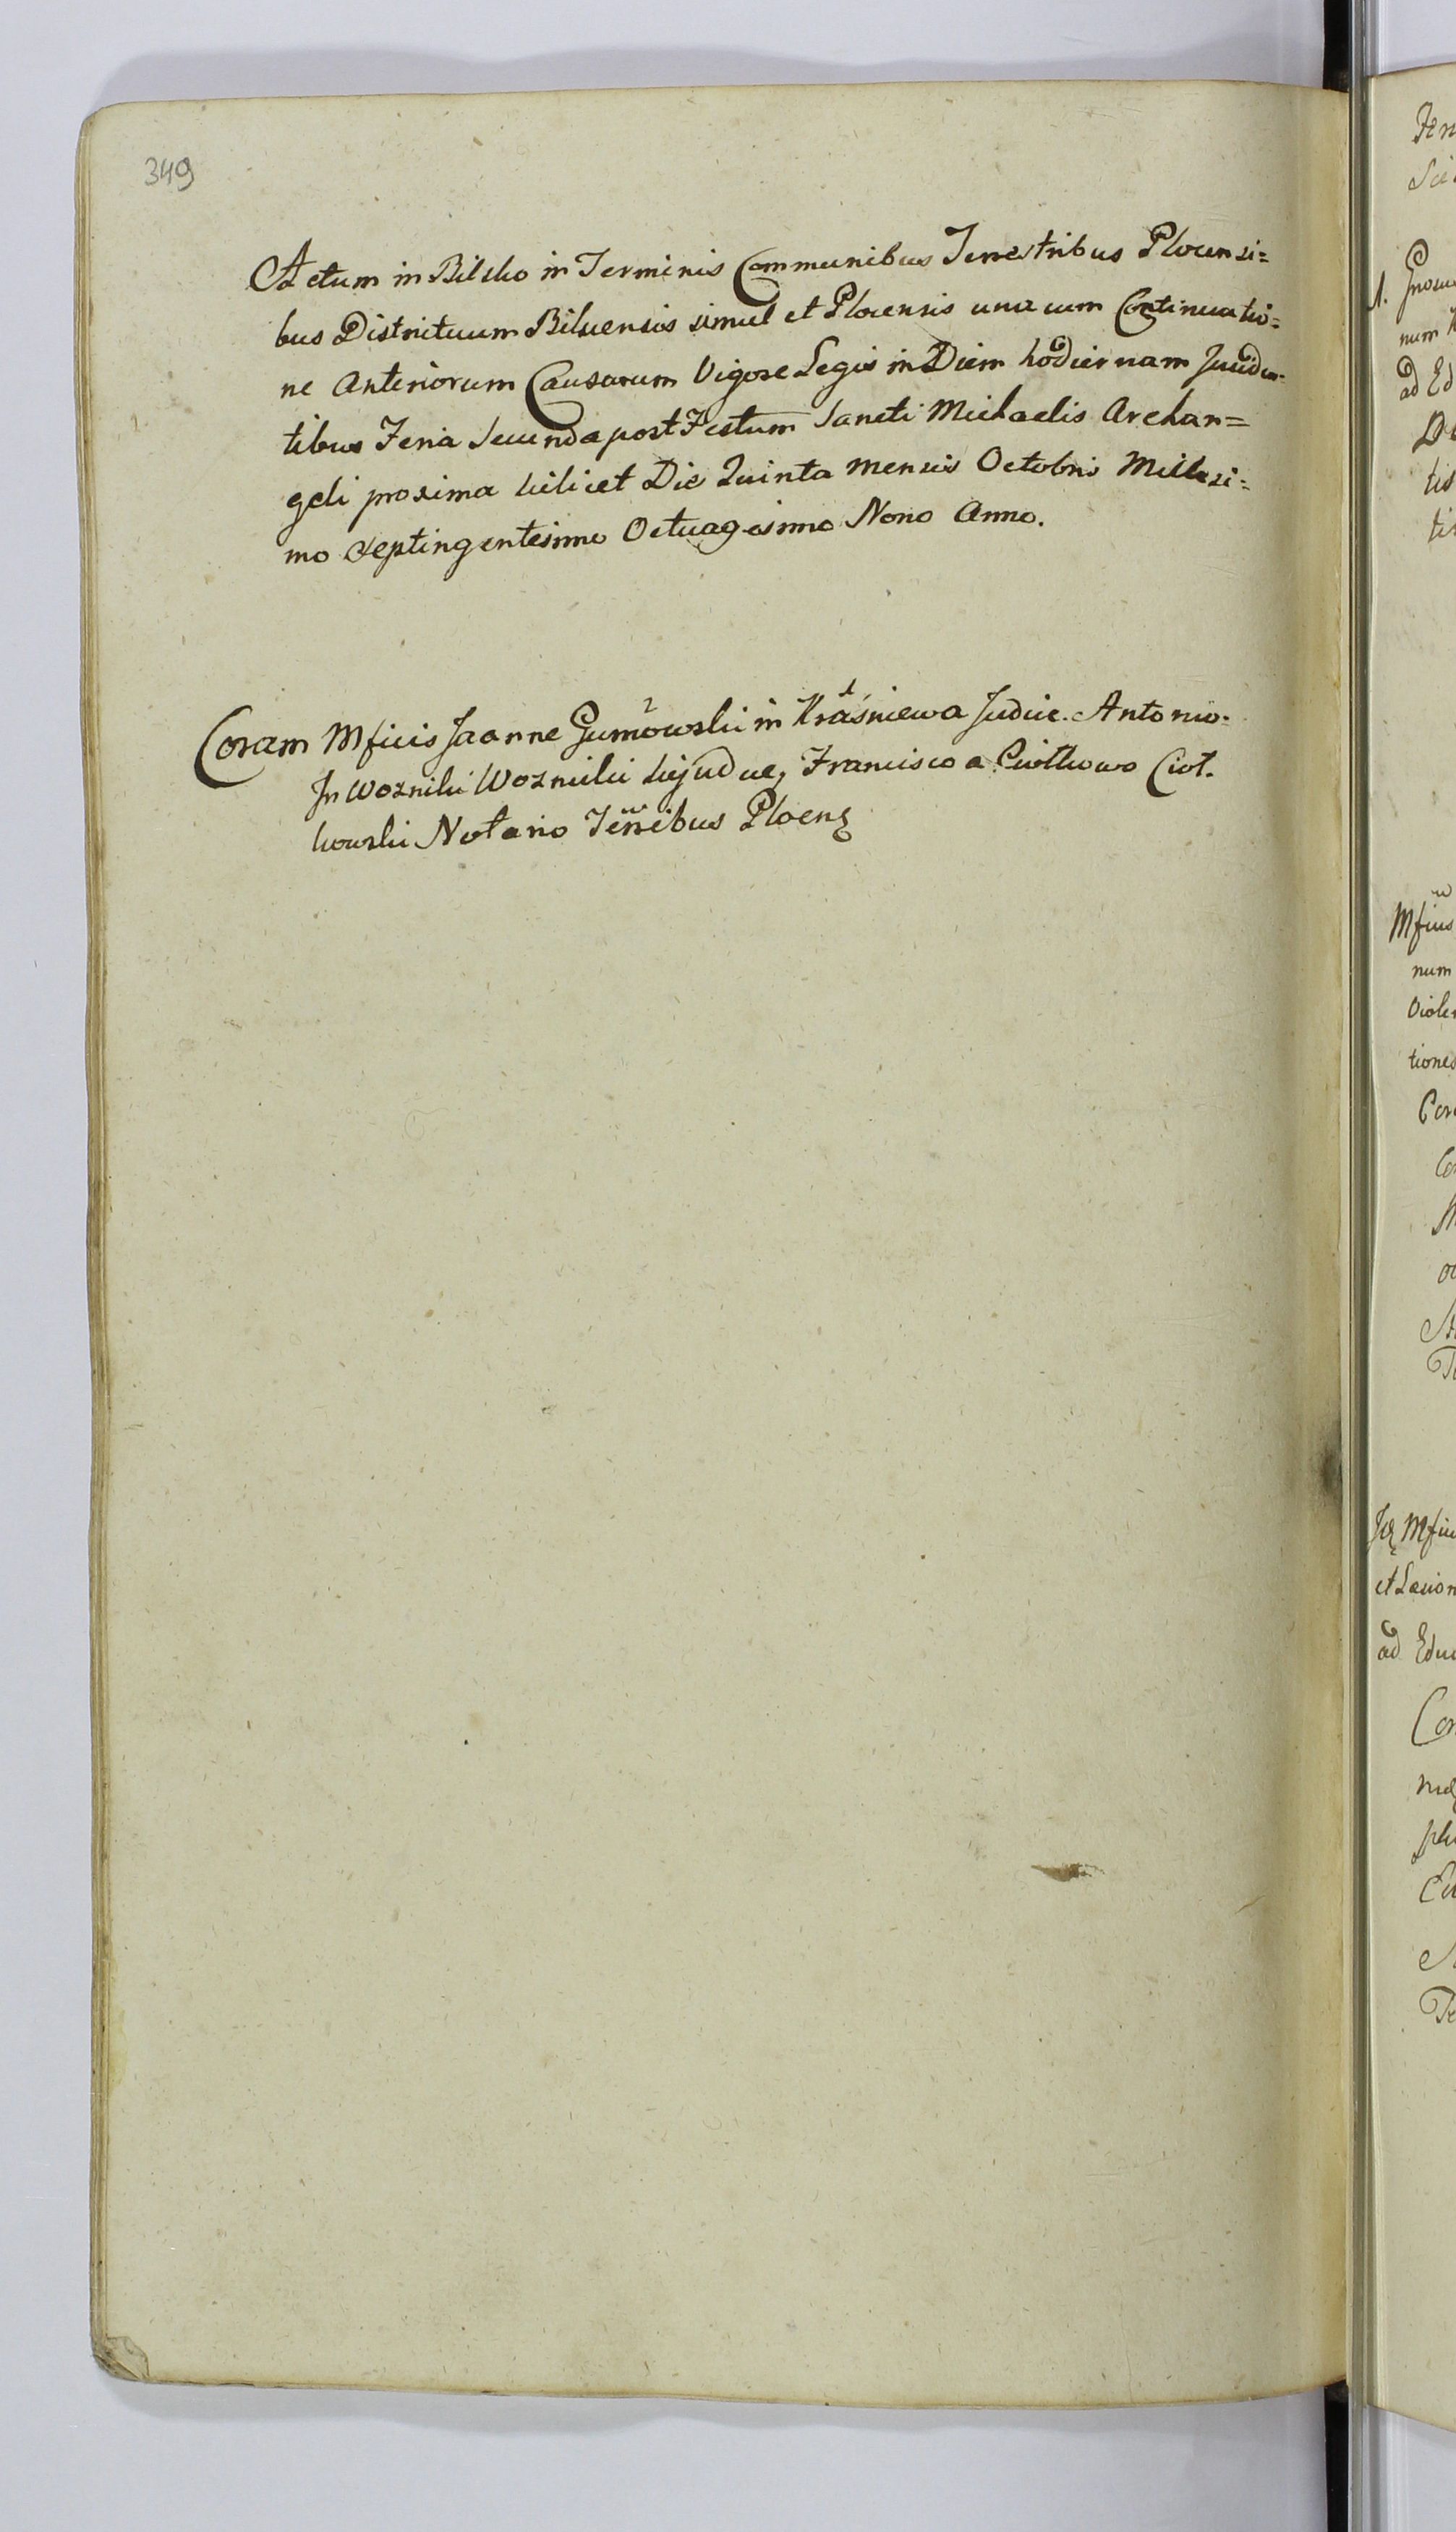 349
Actum in Bilsko in Terminis Communibus Terrestribus Plocensi=
bus Districtuum Bilscensis simul et Plocensis una cum Continuatio=
ne Anteriorum Causarum Vigore Legis in Diem hodiernam Inciden=
tibus Feria Secunda post Festum Sancti Michaelis Archan=
geli proxima scilicet Die Quinta Mensis Octobris Millesi=
mo Septingentesimo Octuagesimo Nono Anno.
Coram Mficis Joanne Gumowski in Kraśniewa Judice. Antonio.
In Wozniki Woznicki Sujudce, Francisco a Ciołkowo Cioł.
kowski Notario Terribus Plocens
1.
ad Ed
Mficus
num
tiones
et
ad